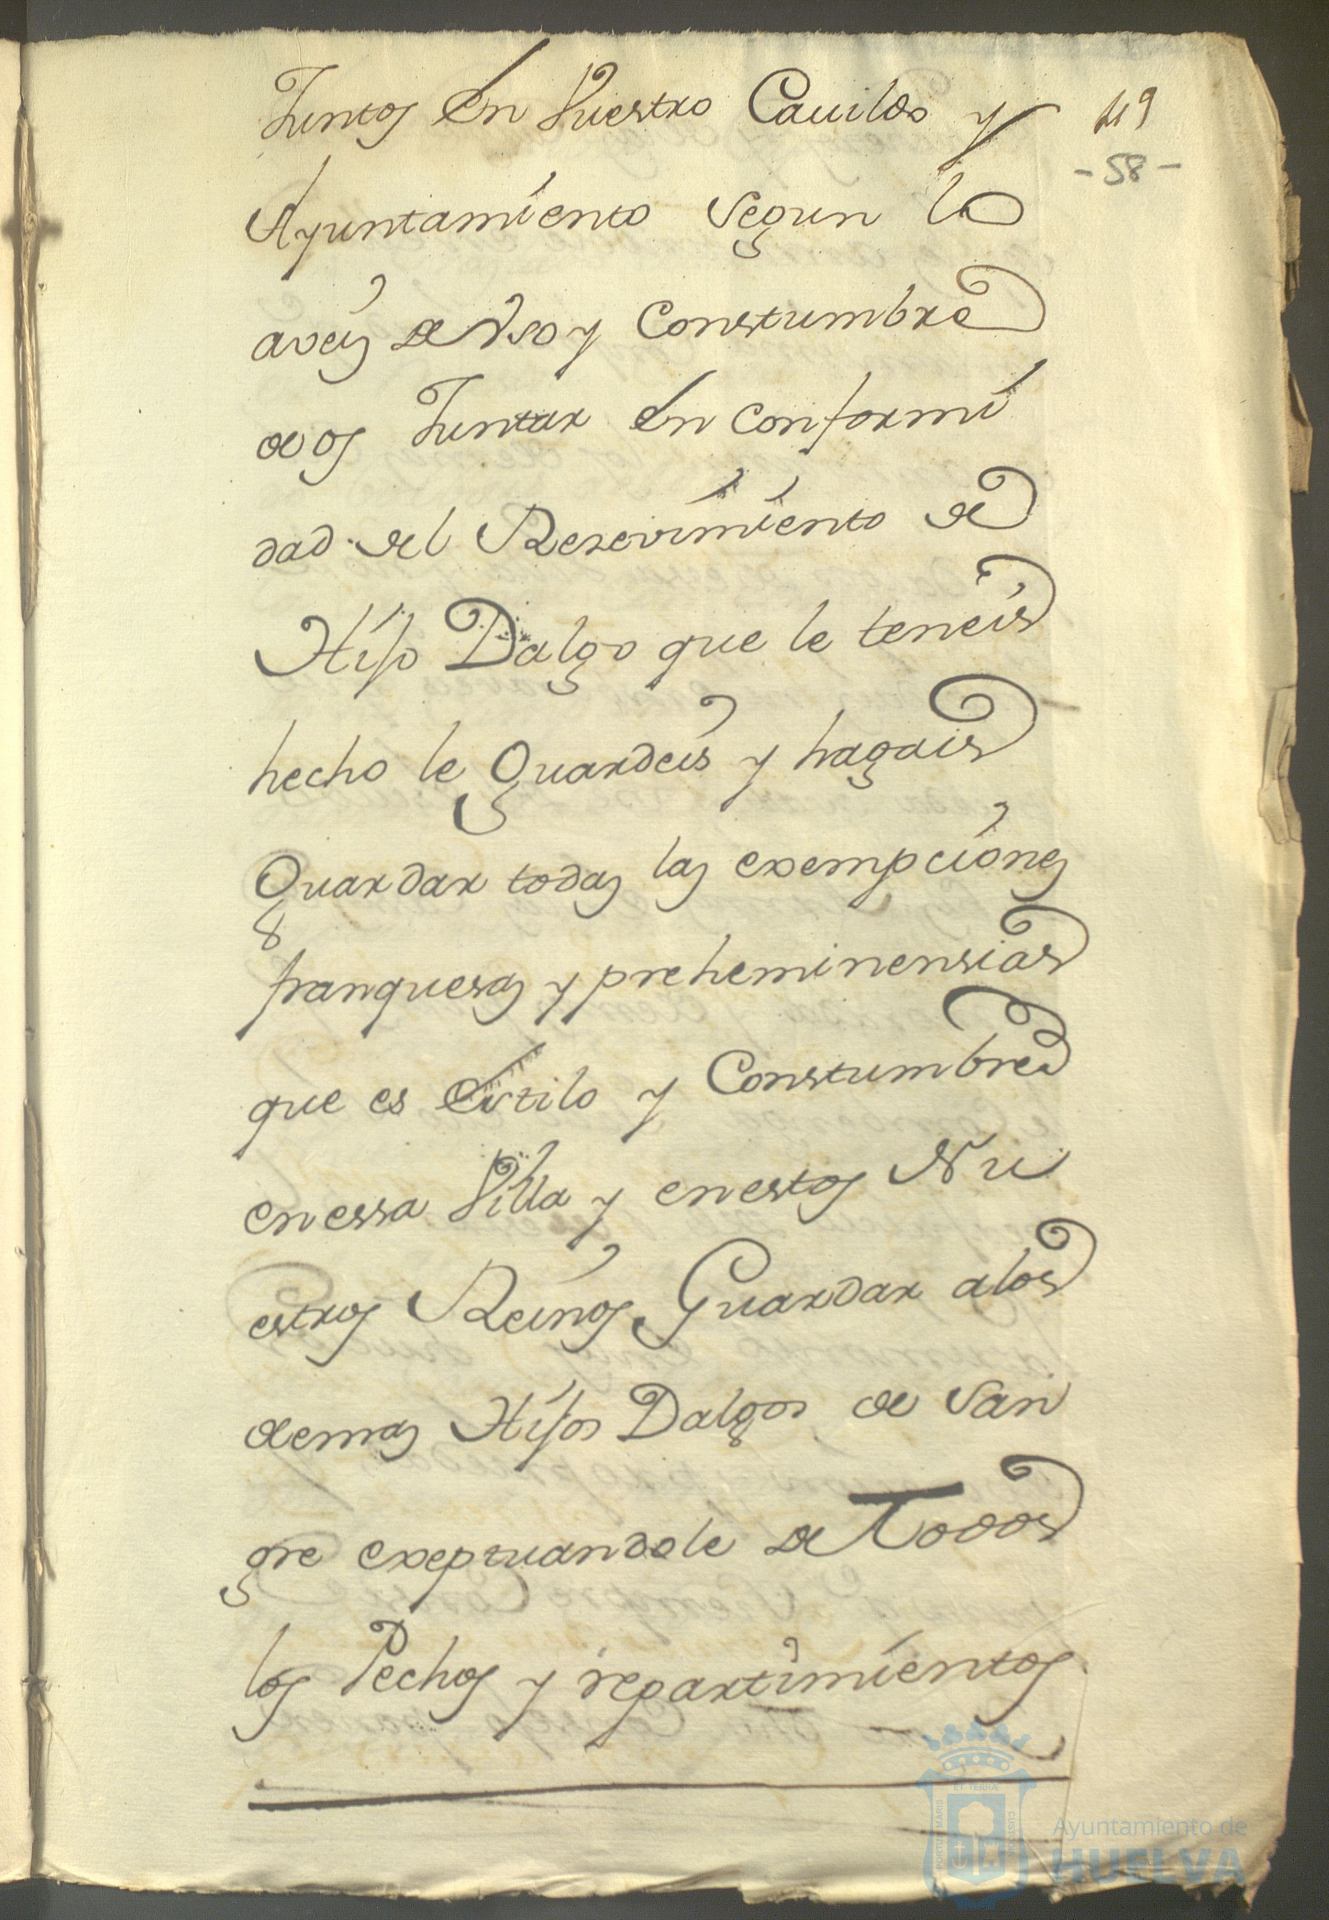 Juntos en Vuestro Cauildo y
49
- 58 -
Ayuntamiento segun lo
aveis de Vso y Constumbre
de os Juntar en conformi
dad del Resevimiento de
Hijo Dalgo que le teneis
hecho le Guardeis y hagais
Guardar todas las exempciones
franquesas y preheminensias
que es estilo y Constumbre
en essa Villa y en estos Nu
estros Reinos Guardar a los
demas Hijos Dalgos de San
gre exeptuandole de Todos
los Pechos y repartimientos
Ayuntamiento de
HUELVA